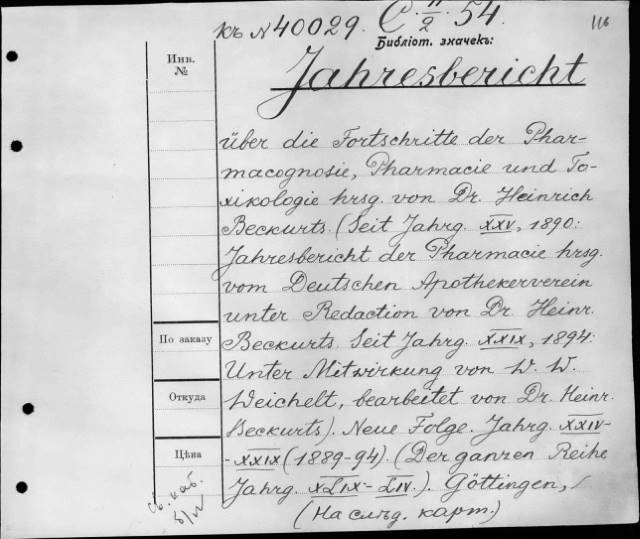 къ № 40029. C. II/2 54.
116
Библіот. значекъ:
Инв.
№
Jahresbericht
über die Fortschritte der Phar-
macognosie, Pharmacie und To-
xikologie hrsg. von Dr. Heinrich
Beckurts. (Seit Jahrg. XXV, 1890:
Jahresbericht der Pharmacie hrsg.
vom Deutschen Apothekerverein
unter Redaction von Dr. Heinr.
По заказу
Beckurts. Seit Jahrg. XXIX, 1894:
Unter Mitwirkung von W. W.
Откуда
Weichelt, bearbeitet von Dr. Heinr.
Beckurts). Neue Folge. Jahrg. XXIV-
Цѣна
-XXIX (1889-94). (Der ganzen Reihe
Jahrg. XLIX-LIV.). Göttingen,
(На слѣд. карт.)
каб.